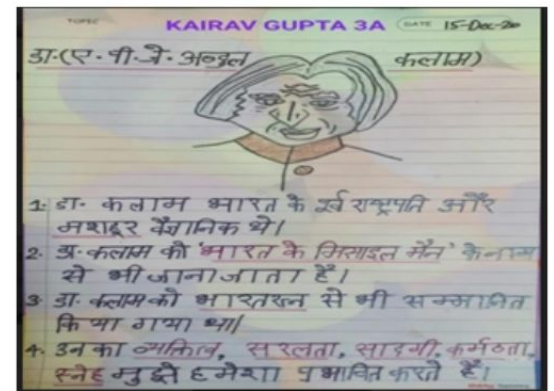 TOPIC KAIRAV GUPTA 3A DATE 15-Dec-20
डा.(ए.पी.जे.अब्दुल कलाम)
1. डा. कलाम भारत के पूर्व राष्ट्रपति और
मशहूर वैज्ञानिक थे।
2. डा. कलाम को 'भारत के मिसाइल मैन' के नाम
से भी जाना जाता है।
3 डा. कलाम को भारतरत्न से भी सम्मानित
किया गया था।
4. उनका व्यक्तित्व, सरलता, सादगी, कर्मठता,
स्नेह मुझे हमेशा प्रभावित करते हैं।